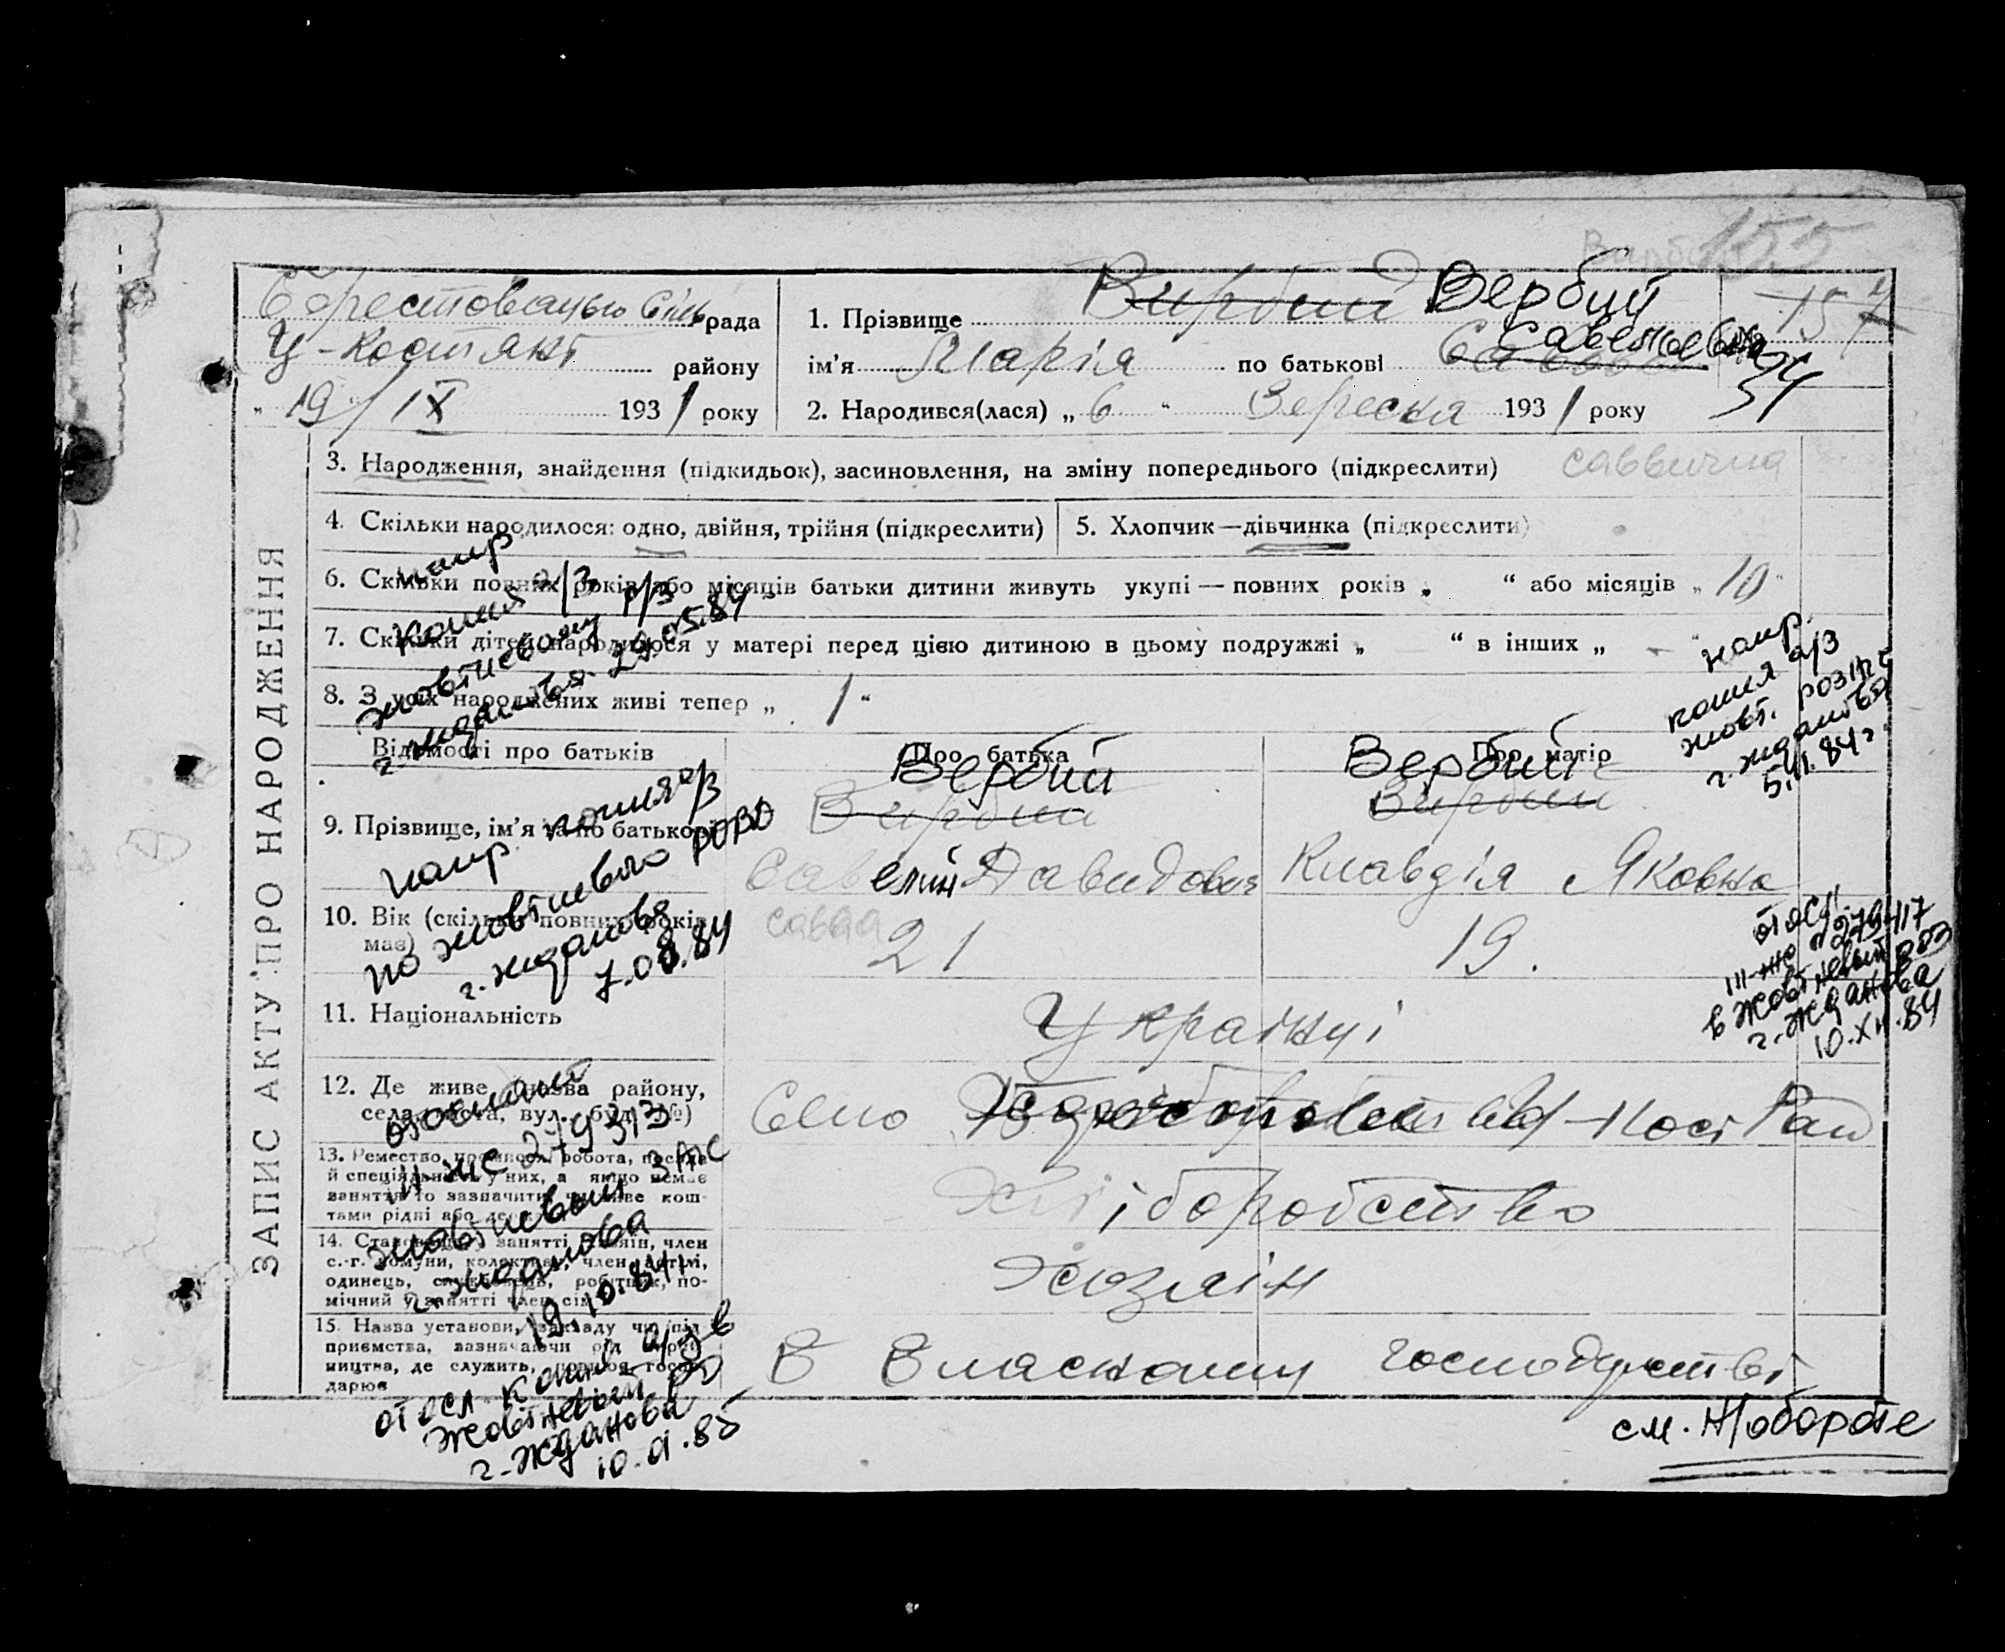 155
рада
У-Костянт району
"19" IX 1931 року
1. Прізвище Вирбий Вербий
ім'я Марія по батькові Савельевна
2. Народився(лася) „6" Вересня 1931 року
157
34
ЗАПИС АКТУ ПРО НАРОДЖЕННЯ
3. Народження, знайдення (підкидьок), засиновлення, на зміну попереднього (підкреслити) саввична
4. Скільки народилося: одно, двійня, трійня (підкреслити)
5. Хлопчик—дівчинка (підкреслити)
6. Скільки повних років або місяців батьки дитини живуть укупі — повних років „ “ або місяців „10“
7. Скільки дітей народилося у матері перед цією дитиною в цьому подружжі „ “ в інших „ - “
8. З усіх народжених живі тепер „ 1 “
Відомості про батьків
Про батька
Про матір
9. Прізвище, ім'я та по батькові
Вербий
Вирбий
Савелий Давидович
Вербий
Вирбий
Клавдія Яковна
10. Вік (скільки повних років має)
савва
21
19.
11. Національність
Українці
12. Де живе (назва району, села, міста, вул., буд. №)
Село Рай
13. Ремество, промисел, робота, посада й спеціяльність у них, а якщо немає заняття то зазначити, чи живе коштами рідні або
Хліборобство
14. Становище у занятті, хазяїн, член с.-г. комуни, колективу, член артілі, одинець, службовець, робітник, помічний у занятті член сім'ї
Хозяїн
15. Назва установи, закладу чи підприємства, зазначаючи рід виробництва, де служить, працює, господарює
В власному господарстві
напр.
копия а/з
Жовтневому р/з
г. Жданова 29.05.84
напр. копия а/з
по Жовтневого РОВД
г. Жданова
7.08.84
отослан
II-ЖС 279313
Жовтневый ЗАГС
г. Жданова
19.10.84г
отосл. копия а/з в
Жовтневый
г. Жданова
10.01.85
напр.
копия а/з
Жовт.
г. Жданова
5.XI.84г.
отосл.
III-ЖЮ №279417
в Жовтневый
г. Жданова
10.XII.84
см. На обороте